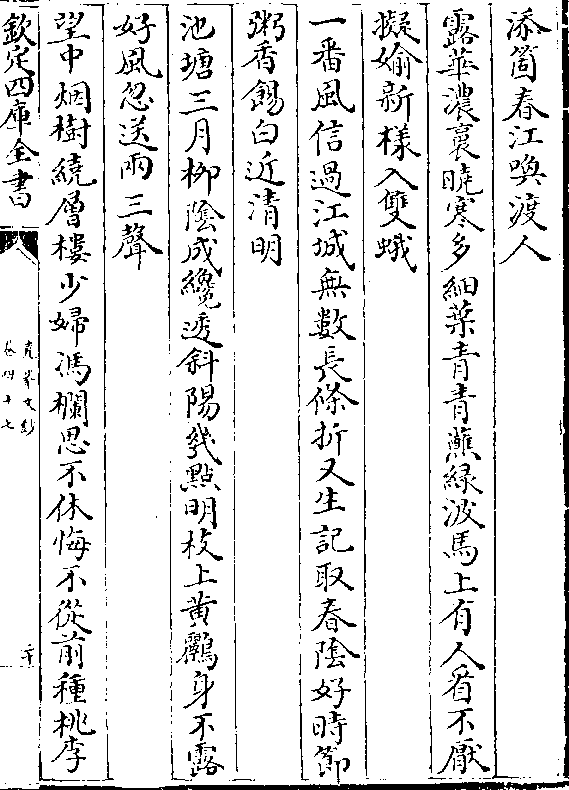 添箇春江喚渡人
露華濃裏曉寒多細葉青青蘸綠波馬上有人看不厭
擬媮新樣入雙蛾
一番風信過江城無數長條折又生記取春陰好時節
粥香餳白近清明
池塘三月柳陰成纔透斜陽幾點明枝上黃鸝身不露
好風忽送兩三聲
望中烟樹繞層樓少婦馮欄思不休悔不從前種桃李
欽定四庫全書
堯峯文鈔
卷四十七
二十